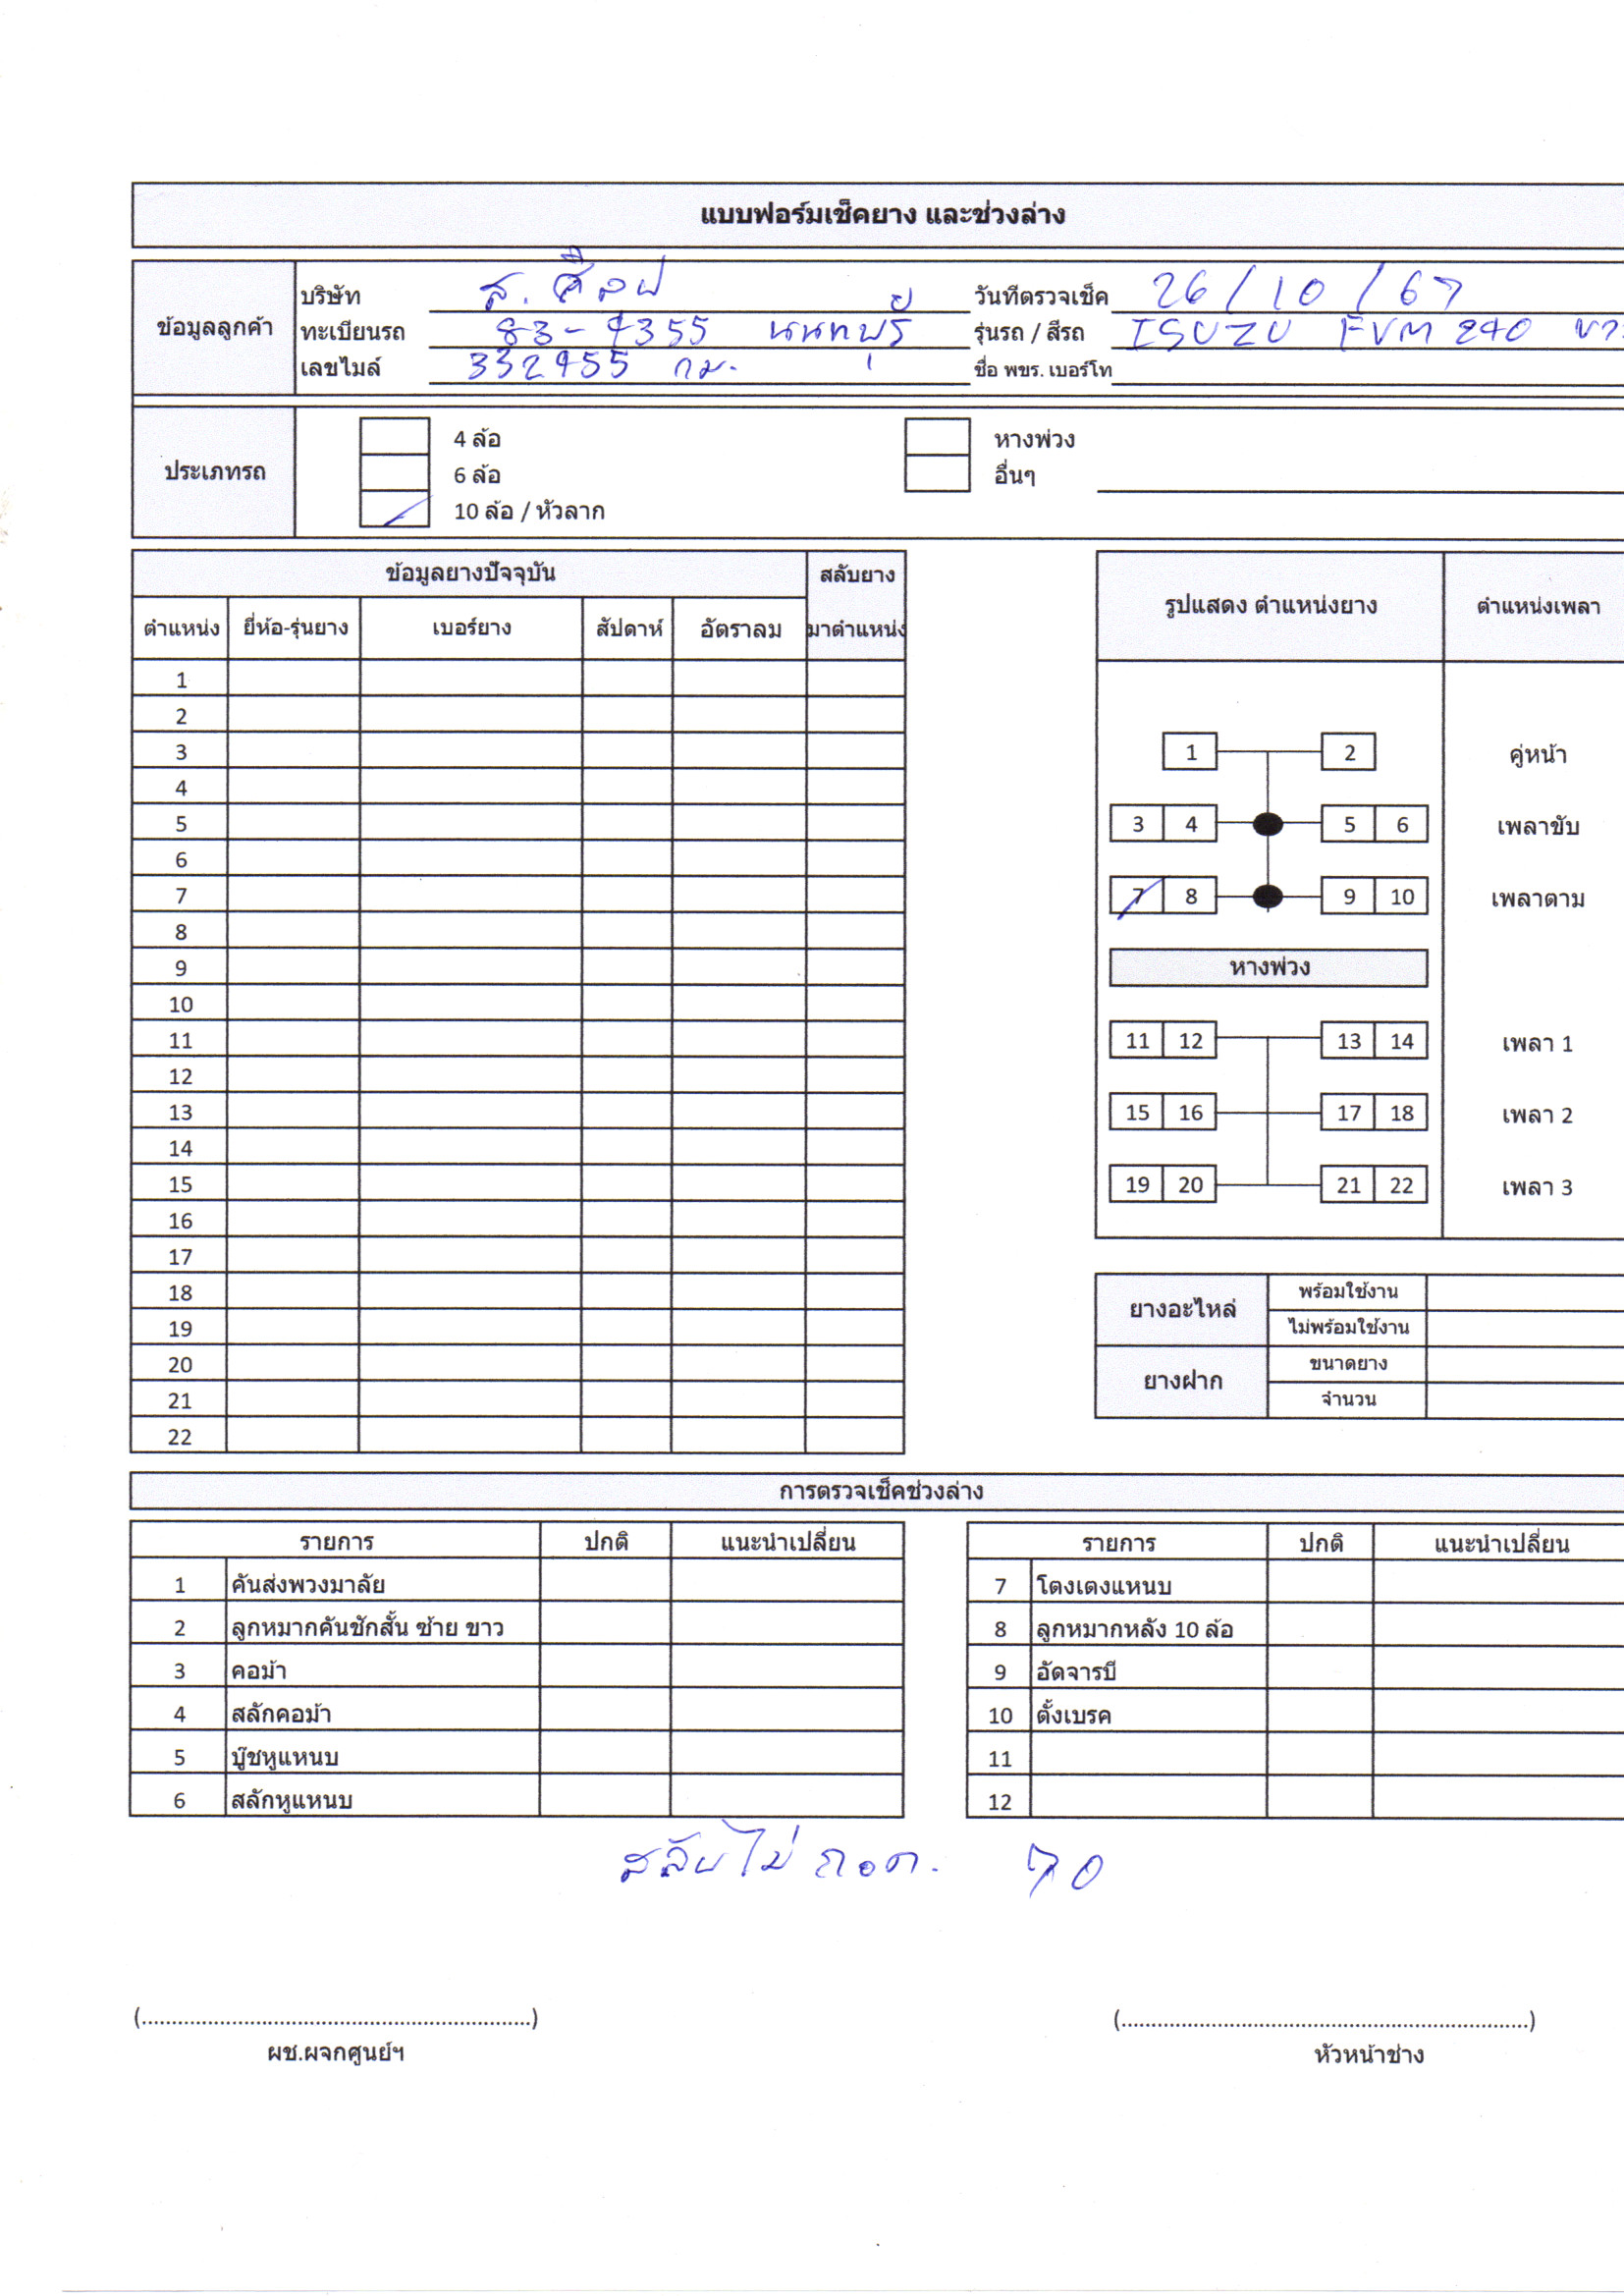 แบบฟอร์มเช็คยาง และช่วงล่าง
ข้อมูลลูกค้า
บริษัท ส. ศิลป วันที่ตรวจเช็ค 26/10/67
ทะเบียนรถ 83-4355 นนทบุรี รุ่นรถ / สีรถ ISUZU FVM 240
เลขไมล์ 332455 กม. ชื่อ พขร. เบอร์โท
ประเภทรถ
4 ล้อ หางพ่วง
6 ล้อ อื่นๆ
10 ล้อ / หัวลาก
ข้อมูลยางปัจจุบัน สลับยาง
ตำแหน่ง ยี่ห้อ-รุ่นยาง เบอร์ยาง สัปดาห์ อัตราลม มาตำแหน่ง
1
2
3
4
5
6
7
8
9
10
11
12
13
14
15
16
17
18
19
20
21
22
รูปแสดง ตำแหน่งยาง ตำแหน่งเพลา
1 2 คู่หน้า
3 4 5 6 เพลาขับ
7 8 9 10 เพลาตาม
หางพ่วง
11 12 13 14 เพลา 1
15 16 17 18 เพลา 2
19 20 21 22 เพลา 3
ยางอะไหล่ พร้อมใช้งาน
ไม่พร้อมใช้งาน
ยางฝาก ขนาดยาง
จำนวน
การตรวจเช็คช่วงล่าง
รายการ ปกติ แนะนำเปลี่ยน
1 คันส่งพวงมาลัย
2 ลูกหมากคันชักสั้น ซ้าย ขาว
3 คอม้า
4 สลักคอม้า
5 บู๊ชหูแหนบ
6 สลักหูแหนบ
รายการ ปกติ แนะนำเปลี่ยน
7 โตงเตงแหนบ
8 ลูกหมากหลัง 10 ล้อ
9 อัดจารบี
10 ตั้งเบรค
11
12
สลับไม่ถอด. 70
(.................................................................) (....................................................................)
ผช.ผจกศูนย์ฯ หัวหน้าช่าง